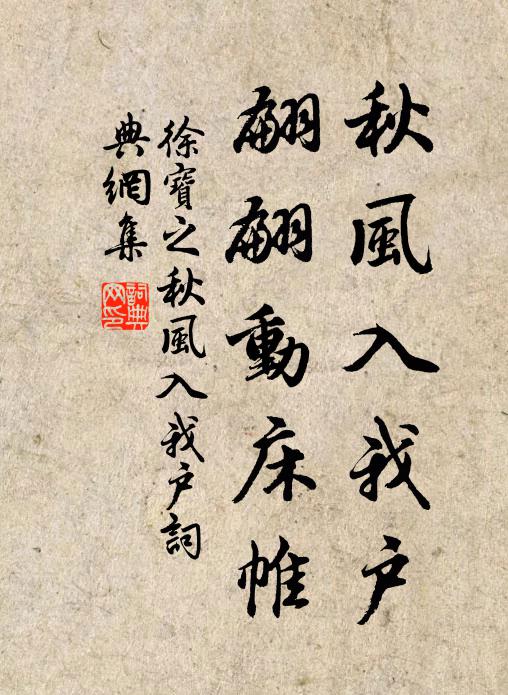 秋風入我户
翩翩動床帷
徐寶之秋風入我户詞
典網集
詞典網印